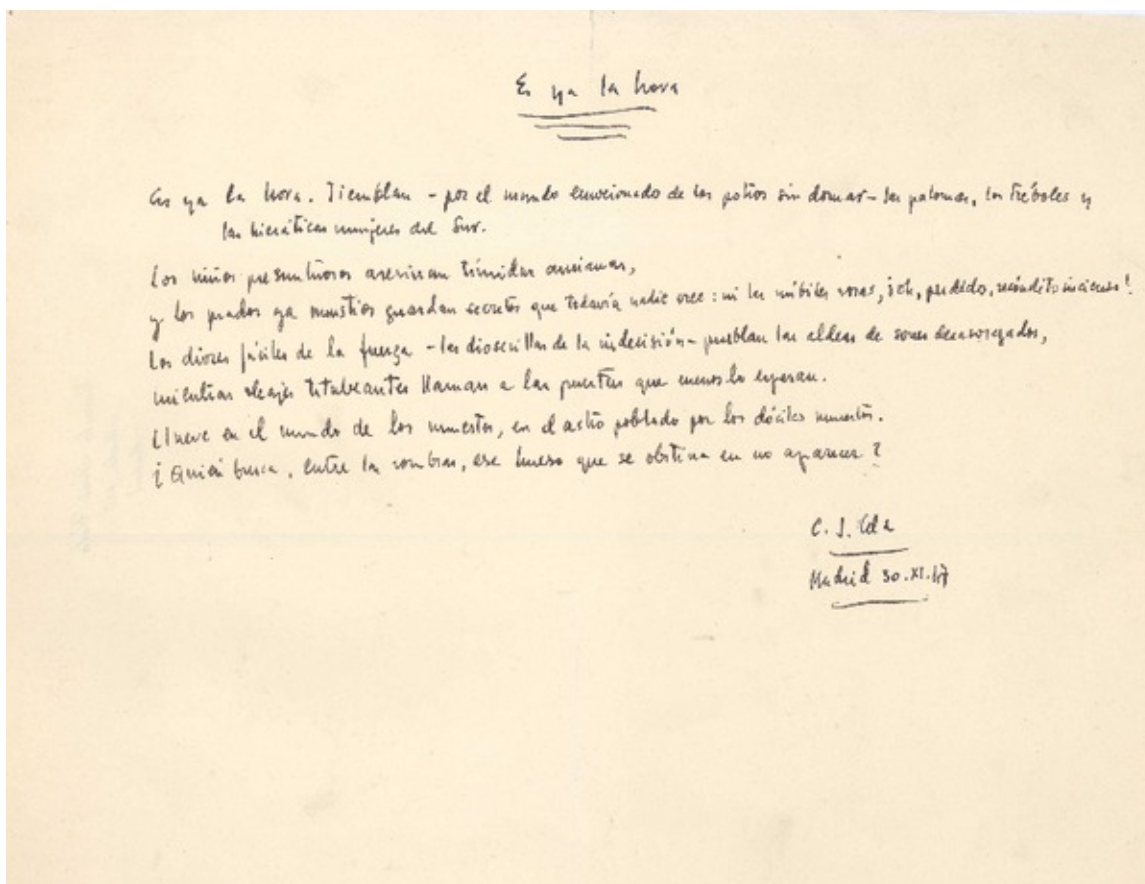 Es ya la hora
Es ya la hora. Tiemblan - por el mundo emocionado de los potros sin domar - las palomas, los tréboles y
las hieráticas mujeres del Sur.
Los niños presuntuosos asesinan tímidas ancianas,
y los prados ya mustios guardan secretos que todavía nadie cree: ni las núbiles rosas, ¡oh, perdido, recóndito incienso!
Los dioses fáciles de la fuerza - las diosecillas de la indecisión - pueblan las aldeas de sones desasosegados,
mientras titubeantes llaman a las puertas que menos lo esperan.
Llueve en el mundo de los muertos, en el astro poblado por los dóciles muertos.
¿Quién busca, entre las sombras, ese hueso que se obstina en no aparecer?
C. J. Cela
Madrid 30.XI.47